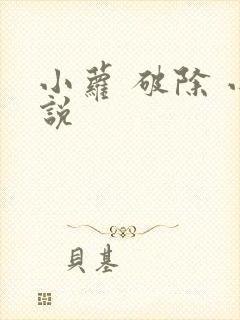 小蘿 破除 小
說
貝基